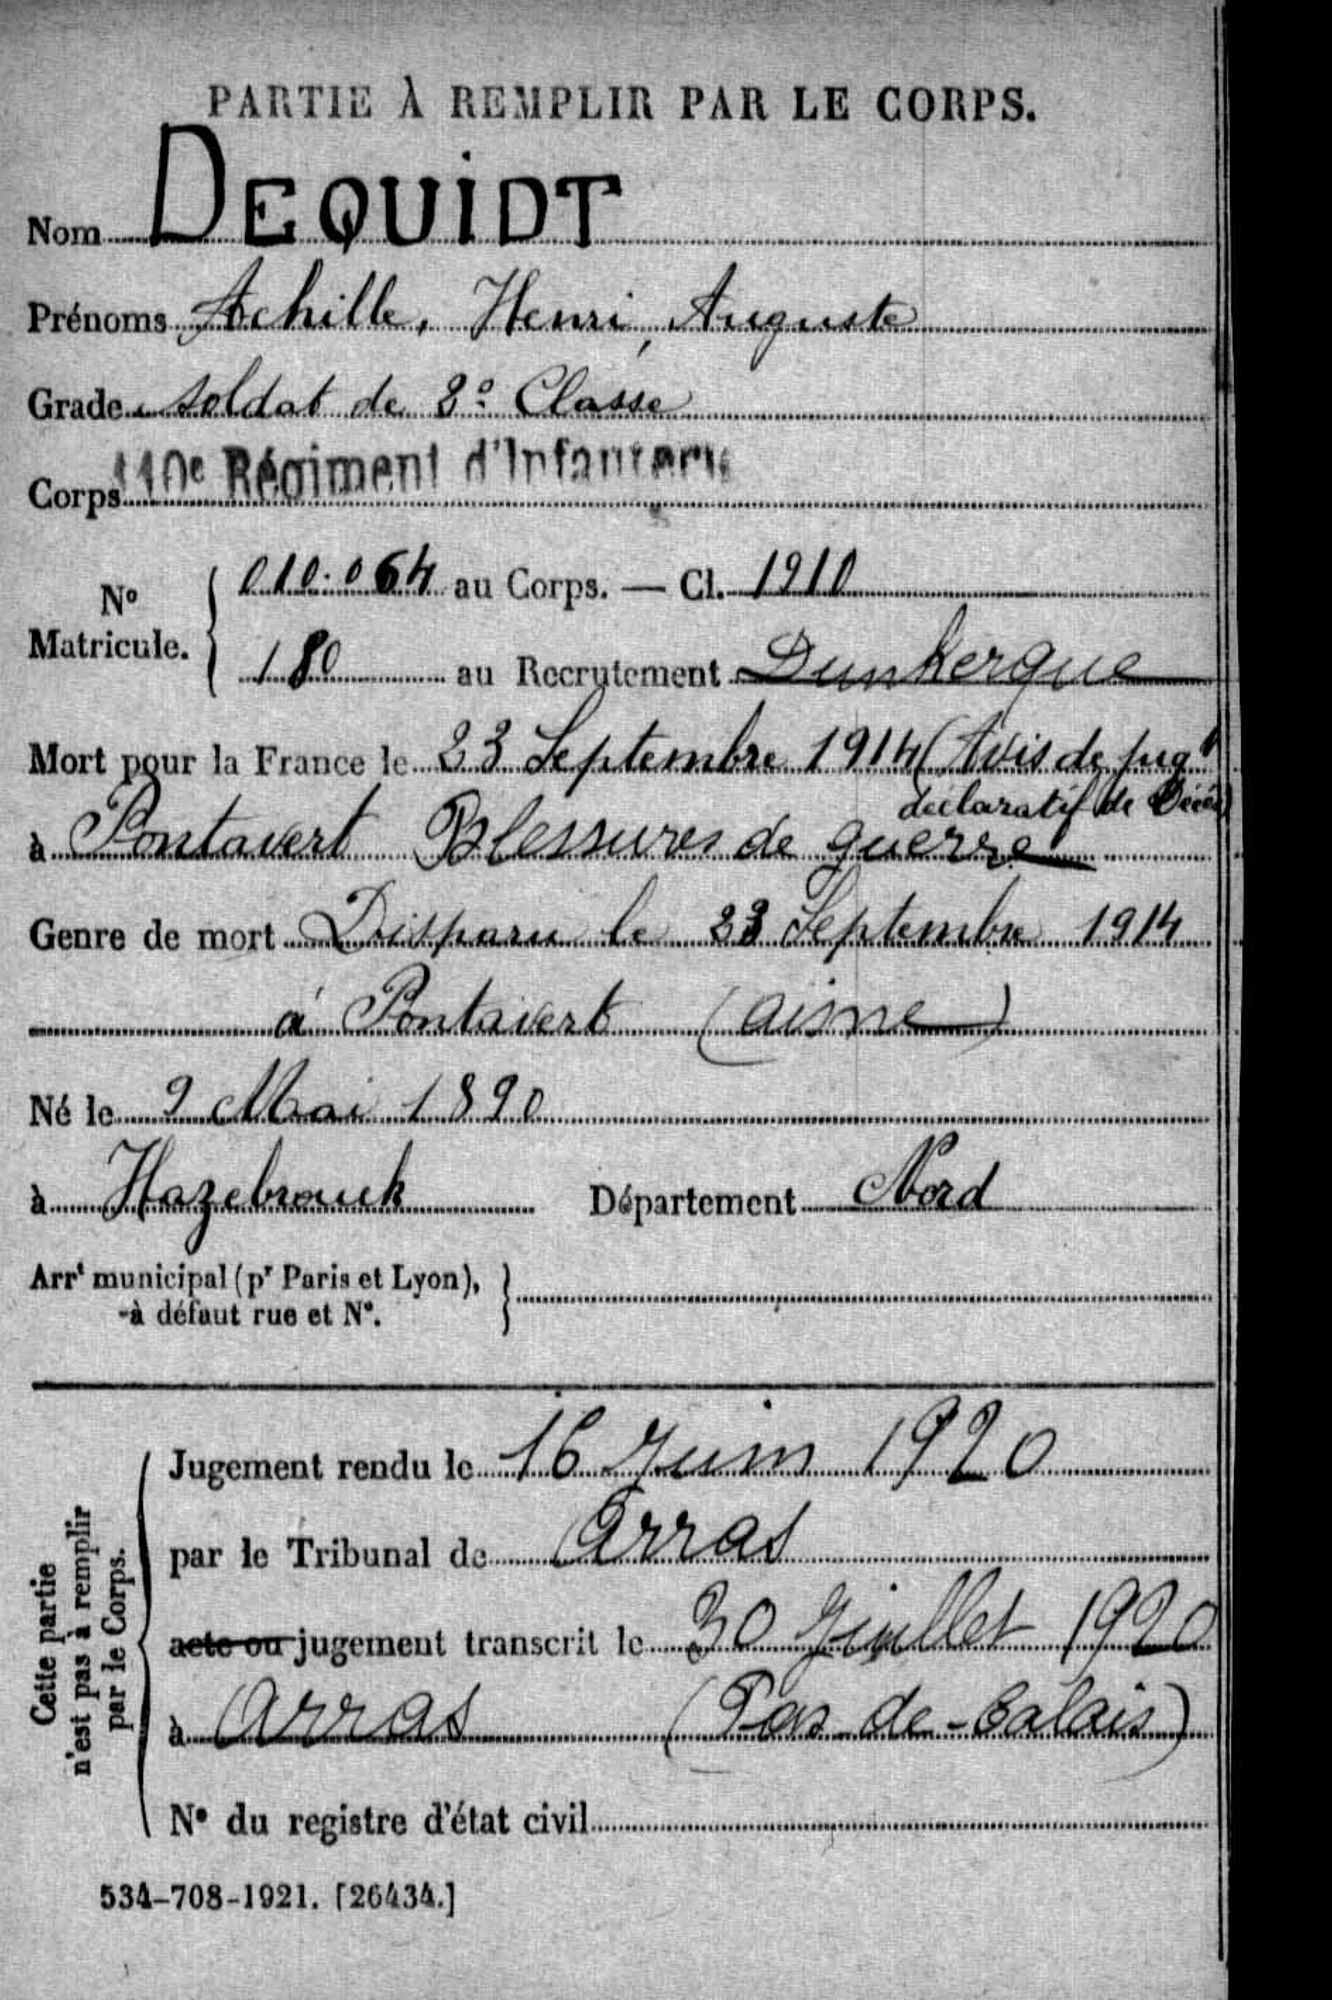 PARTIE À REMPLIR PAR LE CORPS.
Nom DEQUIDT
Prénoms Achille, Henri, Auguste
Grade soldat de 2e Classe
Corps 110e Régiment d'Infanterie
N° Matricule. 010.064 au Corps. — Cl. 1910
180 au Recrutement Dunkerque
Mort pour la France le 23 Septembre 1914 (Avis de jugt
déclaratif de Décès)
à Pontavert Blessures de guerre
Genre de mort Disparu le 23 Septembre 1914
à Pontavert (Aisne)
Né le 9 Mai 1890
à Hazebrouck Département Nord
Arrt municipal (pr Paris et Lyon),
à défaut rue et N°.
Cette partie
n'est pas à remplir
par le Corps.
Jugement rendu le 16 Juin 1920
par le Tribunal de Arras
acte ou jugement transcrit le 30 Juillet 1920
à Arras (Pas-de-Calais)
N° du registre d'état civil
534-708-1921. [26434.]